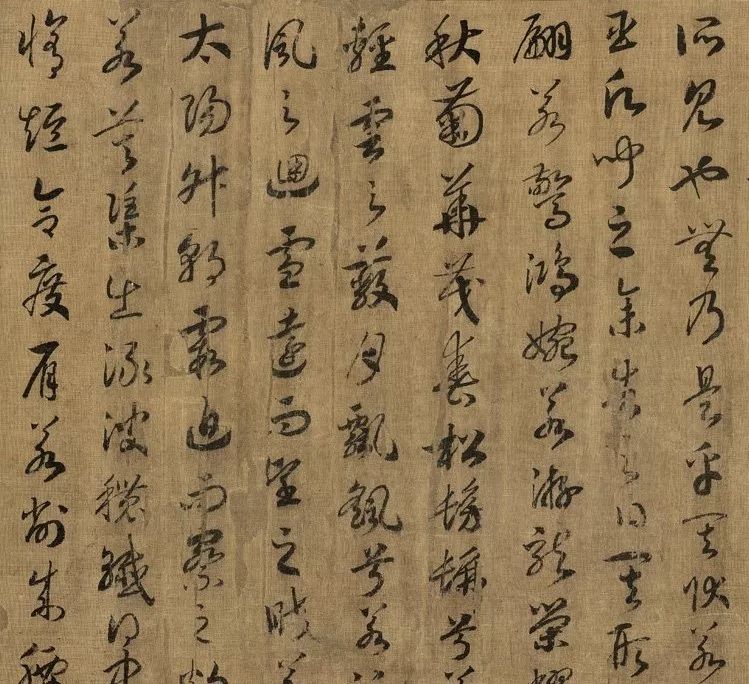 所見也無乃是乎其狀若
臣願聞之余告之曰其形
翩若驚鴻婉若游龍榮曜
秋菊華茂春松髣髴兮若
輕雲之蔽月飄颻兮若
風之迴雪遠而望之皎若
太陽升朝霞迫而察之灼
若芙蕖出淥波穠纖得中
脩短合度肩若削成腰